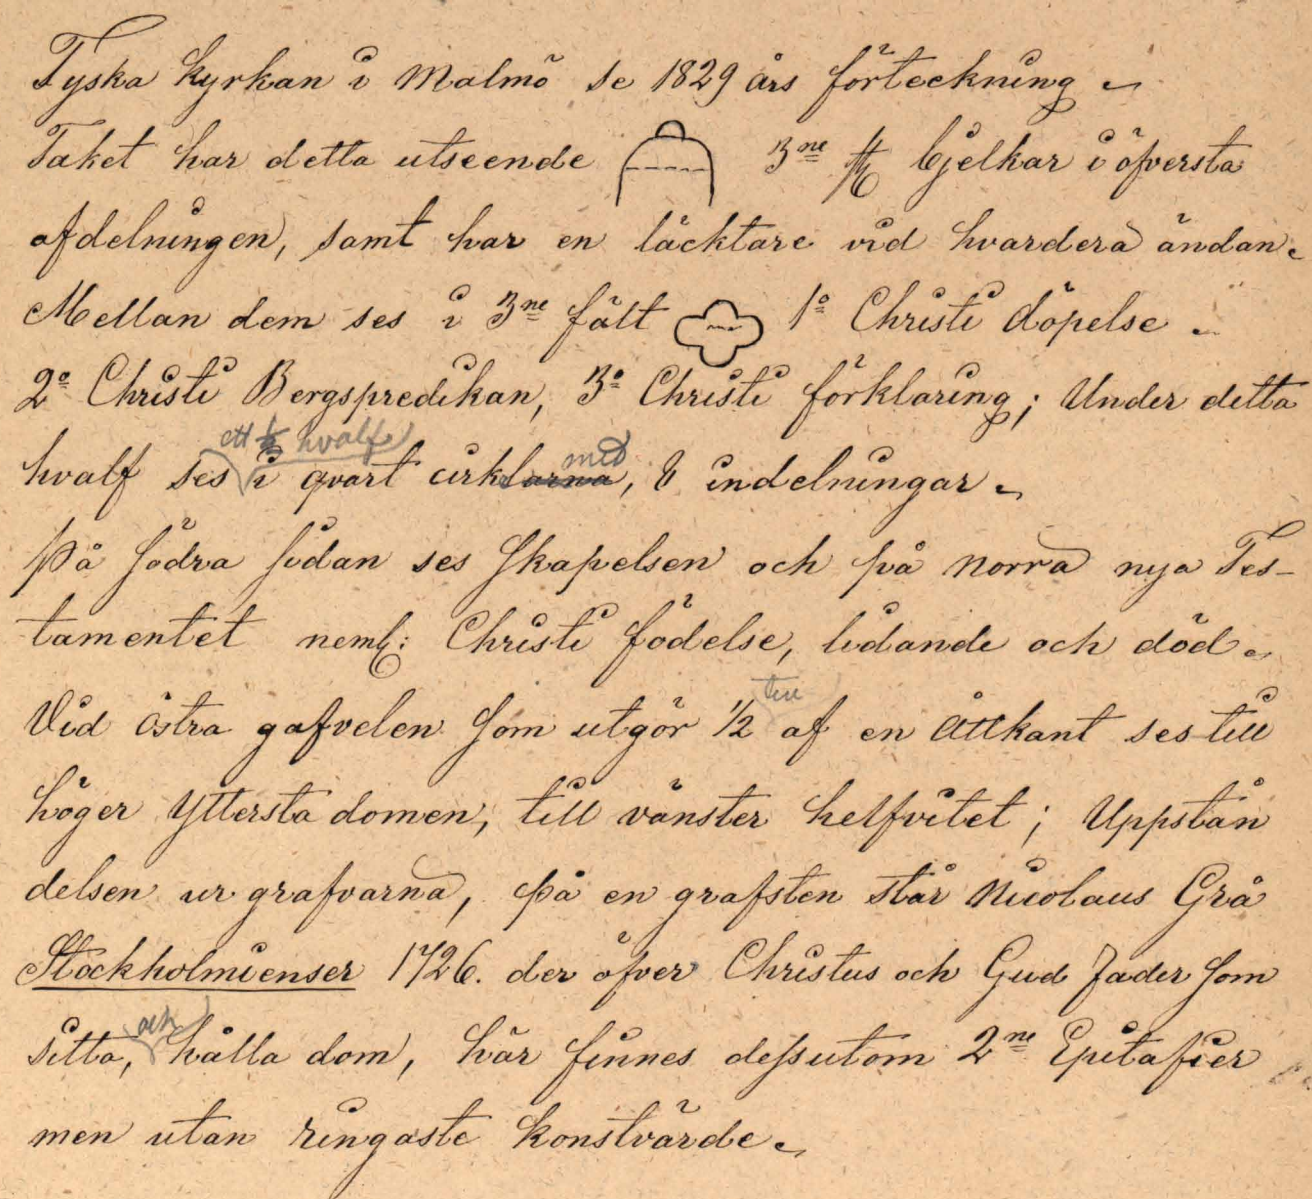 Tyska kyrkan i Malmö se 1829 års förteckning.
Taket har detta utseende 3ne bjelkar i öfversta
afdelningen, samt har en läcktare vid hvardera ändan.
Mellan dem ses i 3ne fält 1o Christi döpelse.
2o Christi Bergspredikan, 3o Christi förklaring; Under detta
ett ½ hvalf med
hvalf ses i qvart cirklarna, 8 indelningar.
På södra sidan ses skapelsen och på norra nya Tes-
tamentet neml: Christi födelse, lidande och död.
till
Vid östra gafvelen som utgör 1/2 af en åttkant ses till
höger yttersta domen, till vänster helfvitet; Uppstån
delsen ur grafvarna, på en grafsten står Nicolaus Grå
Stockholmienser 1726. der öfver Christus och Gud Fader som
och
sitta, hålla dom, här finnes dessutom 2ne Epitafier
men utan ringaste konstvärde.